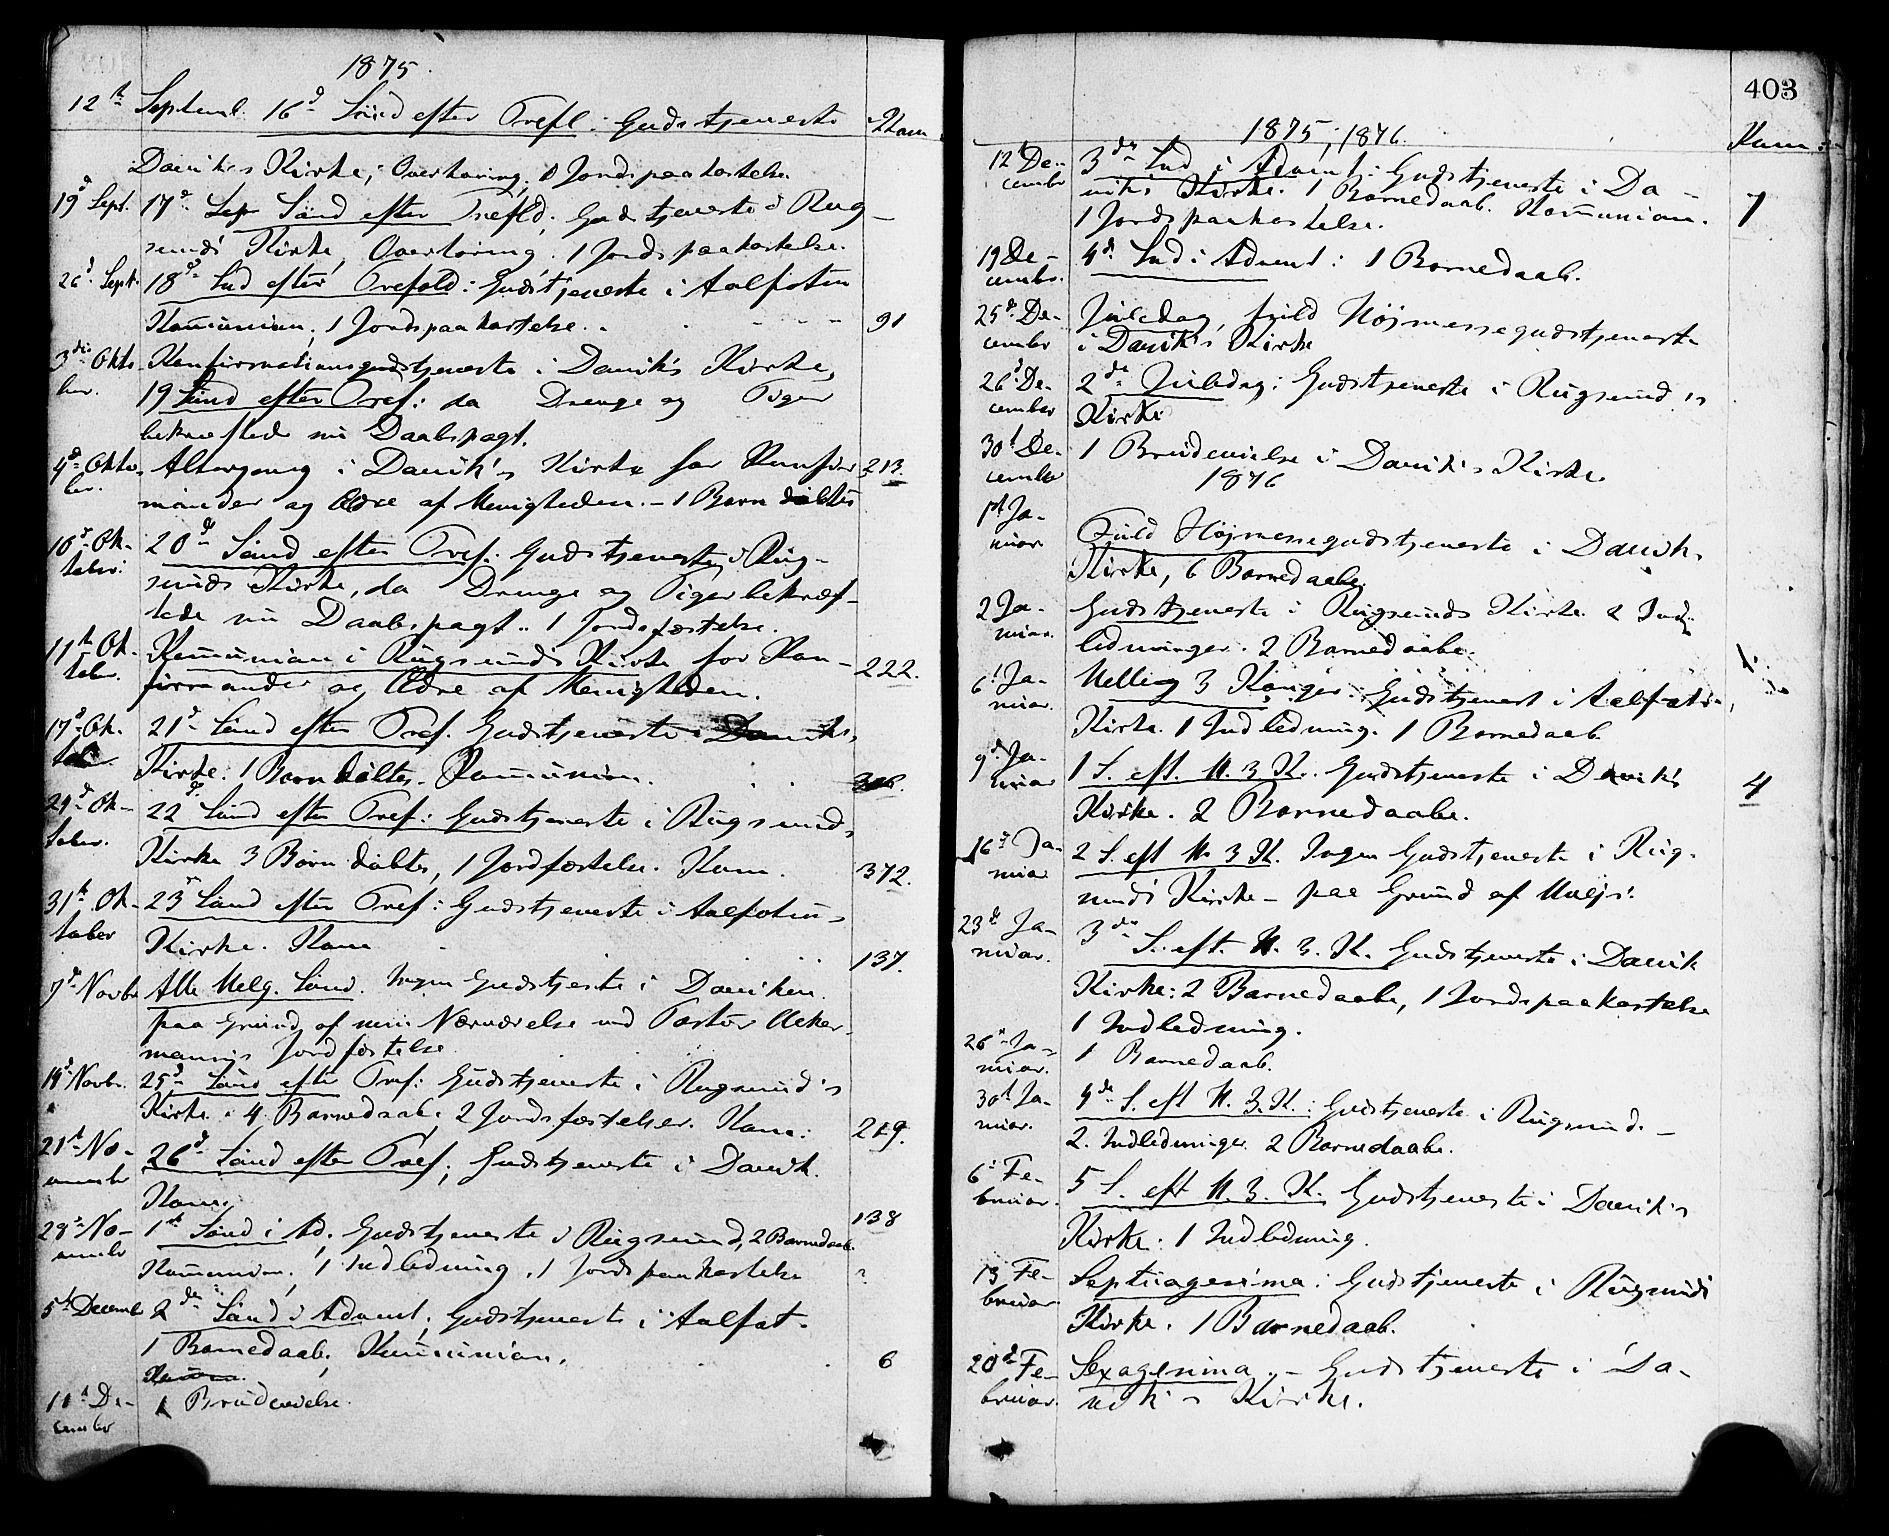 1875.
12te Septemb. 16de Sünd efter Trefl: Gudstjeneste
Kom
Daviks Kirke; Overhøring, 1 Jordspaakastelse.
19de Sept. 17de Sep Sünd efter Trefld; Gudstjeneste i Rug-
sunds Kirke, Overhøring. 1 Jordspaakastelse.
26de Sept. 18de Snd efter Trefold: Gudstjeneste i Aalfoten
Kommunion; 1 Jordspaakastelse. 91
3die Okto Konfirmationsgudstjeneste i Davik's Kirke,
ber. 19 Sünd efter Tref: da Drenge og Piger
bekræftede sin Daabspagt.
4de Okto Altergang i Davik's Kirke for Konfir 213.
ber. mander og Ældre af Menigheden. - 1 Barn døbtes
10de Ok- 20de Sünd efter Tref: Gudstjeneste i Rüg-
tober: sunds Kirke, da Drenge og Piger bekræf-
tede sin Daabspagt.. 1 Jordsfæstelse.
11te Ok- Kommunion i Rügsunds Kirke for Kon- 222.
tobr. firmander og Ældre af Menigheden.
17de Ok. 21de Sünd efter Tref. Gudstjeneste i Daviks
Kirke: 1 Barn døbtes. Kommunion.
24de Ok- 22de Sünd efter Tref: Gudstjeneste i Rügsunds
tober. Kirke 3 Børn døbtes, 1 Jordfæstelse. Kom. 372.
31te Ok- 23de Sünd efter Tref: Gudstjeneste i Aalfoten-
tober Kirke. Kom 137.
7de Novbr Alle Helg. Sünd. Ingen Gudstjeste i Daviken
paa Grund af min Nærværelse ved Pastor Ucker-
manns Jordfæstelse.
14de Novbr. 25de Sünd efter Tref: Gudstjeneste i Rugsund's
Kirke: 4 Barnedaab; 2 Jordsfæstelser. Kom: 219.
21te No- 26de Sünd efter Tref; Gudstjeneste i Davik.
vember Kom; 138
28de No- 1ste Sünd i Ad. Gudstjeneste i Rügsund, 2 Barnedaab.
vember Kommunion, 1 Indledning, 1 Jordspaakastelse ?
5te Decembr 2den Sünd i Advent. Gudstjeneste i Aalfot.
1 Barnedaab. Kommunion. 6
11te De- 1 Brudevielse.
cember
403
1875; 1876. Kom:
12te De- 3die Snd i Advent: Gudstjeneste i Da-
cembr viks Kirke. 1 Barnedaab. Kommunion. 7
1 Jordspaakastelse.
19 De- 4de Snd i Advent: 1 Barnedaab.
cembr.
25de De- Juledag, fuld Højmessegudstjeneste
cember i Davik's Kirke
26de De- 2den Juledag: Gudstjeneste i Rügsund's
cember Kirke
30te De- 1 Brudevielse i Davik's Kirke.
cember 1876
1ste Ja-
nuar Fuld Højmessegudstjeneste i Daviks
Kirke, 6 Barnedaabe.
2 Ja- Gudstjeneste i Rügsunds Kirke. 2 Ind-
nuar. ledninger. 2 Barnedaabe.
6te Ja- Hellig 3 Konger: Gudstjenest i Aalfot's
nuar. Kirke. 1 Indledning. 1 Barnedaab.
9de Ja- 1 S. eft. H. 3 K. Gudstjeneste i Davik's
nuar Kirke. 2 Barnedaabe. 4
16de Ja- 2 S. eft H. 3 K. Ingen Gudstjeneste i Rüg-
nuar sunds Kirke - paa Grund af Uvejr.
23de Ja- 3die S. eft. H. 3. K. Gudstjeneste i Davik
nuar. Kirke: 2 Barnedaabe, 1 Jordspaakastelse
1 Indledning.
26de Ja- 1 Barnedaab.
nuar.
30te Ja- 4de S. eft H. 3. K.: Gudstjeneste i Rügsund. -
nuar. 2. Indledninger 2 Barnedaabe.
6te Fe- 5 S. eft H. 3. K. Gudstjeneste i Davik's
bruar. Kirke: 1 Indledning.
13 Fe- Septuagesima: Gudstjeneste i Rügsunds
bruar. Kirke. 1 Barnedaab.
20de Fe- Sexagesima. - Gudstjeneste i Da-
bruar. vik's Kirke.